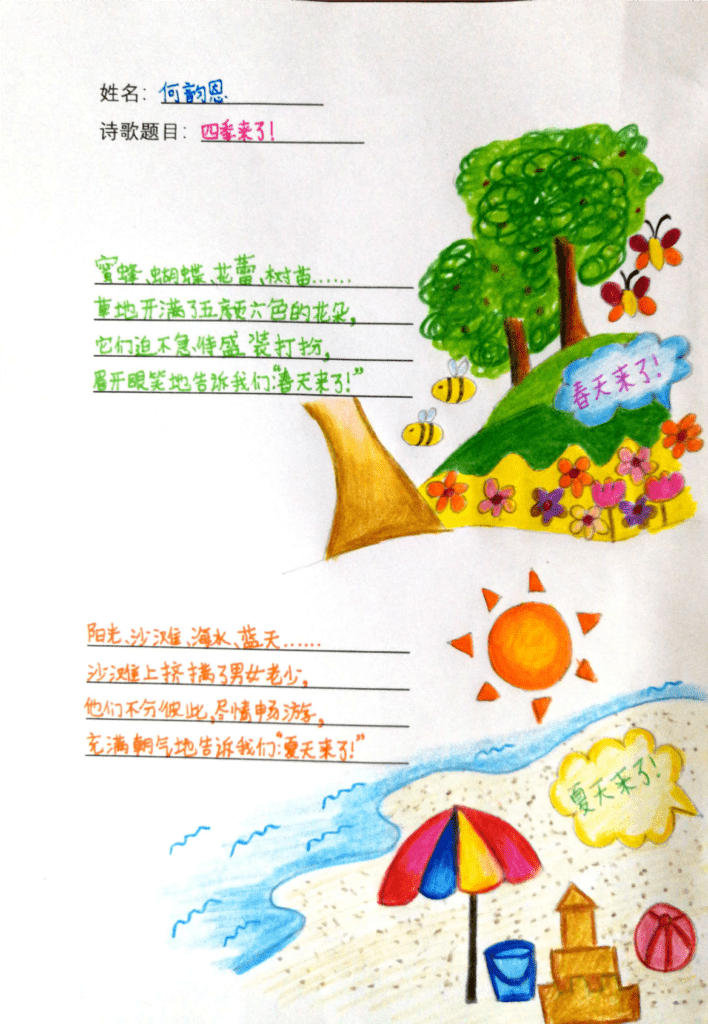 姓名：何韵恩
诗歌题目：四季来了！
蜜蜂、蝴蝶、花蕾、树苗……
草地开满了五颜六色的花朵，
它们迫不急待盛装打扮，
眉开眼笑地告诉我们：“春天来了！”
春天来了！
阳光、沙滩、海水、蓝天……
沙滩上挤满了男女老少，
他们不分彼此，尽情畅游，
充满朝气地告诉我们：“夏天来了！”
夏天来了！